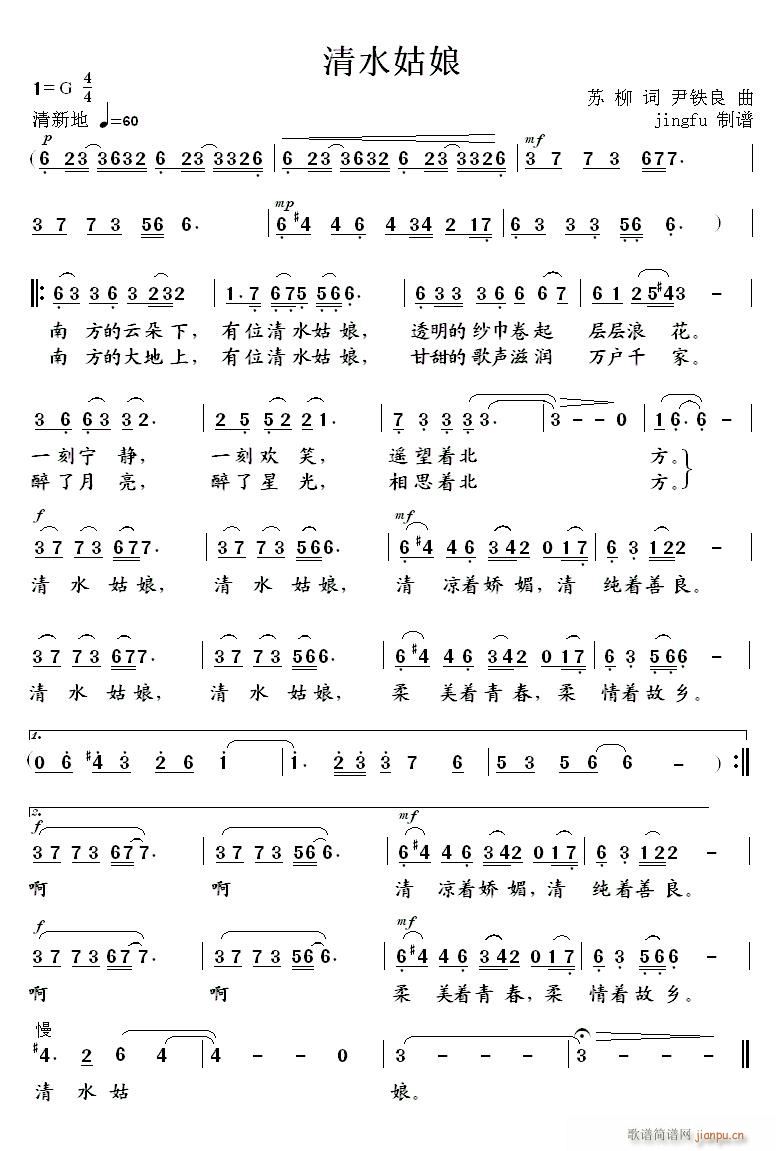 清水姑娘
1=G 4/4
苏 柳 词 尹铁良 曲
清新地 ♩=60
jingfu 制谱
p mf
( 6 23 3632 6 23 3326 | 6 23 3632 6 23 3326 | 3 7 7 3 677. |
mp
3 7 7 3 566 6. | 6 #4 4 6 4 34 2 17 | 6 3 3 3 56 6. )
‖: 63 36 3 232 | 1.7 6756 566. | 633 36 6 67 | 61 25#43 – |
南 方的云朵下, 有位清水姑 娘, 透明的纱巾卷起 层层浪 花。
南 方的大地上, 有位清水姑 娘, 甘甜的歌声滋润 万户千 家。
3 6 63 32. | 25 52 21. | 7 3 33 3. | 3 – – 0 | 16. 6 – |
一刻宁 静, 一刻欢 笑, 遥望着北 方。
醉了月 亮, 醉了星 光, 相思着北 方。
f mf
37 73 677. | 37 73 566. | 6#4 46 3342 017 | 63 3122 – |
清 水 姑娘, 清 水 姑娘, 清 凉着娇 媚,清 纯着善良。
37 73 677. | 37 73 566. | 6#4 46 3442 017 | 63 3566 – |
清 水 姑娘, 清 水 姑娘, 柔 美着青 春,柔 情着故乡。
1.
( 0 6 #4 3 2 6 1 | 1. 2 3 2 3 7 6 | 5 3 5 6 6 – ) :‖
2.
f mf
37 73 677. | 37 73 566. | 6#4 46 3442 017 | 63 3122 – |
啊 啊 清 凉着娇 媚,清 纯着善良。
f mf
37 73 677. | 37 73 566. | 6#4 46 3442 017 | 63 3566 – |
啊 啊 柔 美着青 春,柔 情着故乡。
慢
#4. 2 6 4 | 4 – – 0 | 3 – – – | 3 – – – ‖
清 水 姑 娘。
歌谱简谱网
jianpu.cn